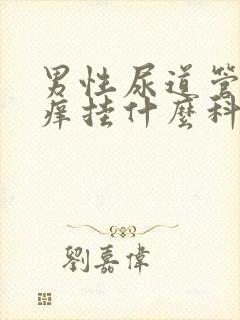 男性尿道管
痒挂什麼科
劉嘉偉